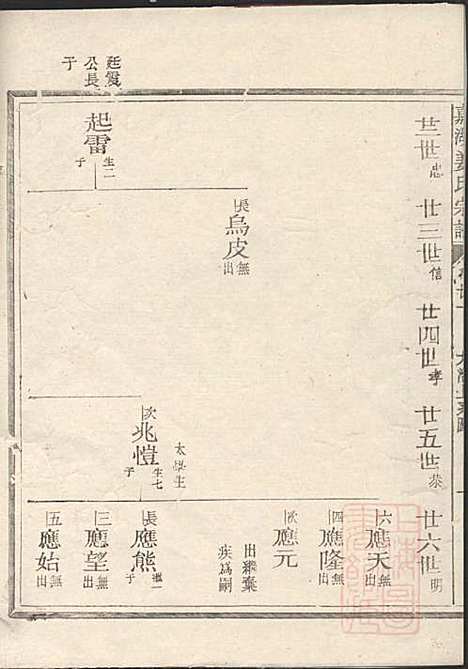 嘉湖姜氏宗譜
廿二世忠
廿三世信
廿四世孝
廿五世恭
廿六世明
廷霞公長子
起雷
生二子
長烏皮
無出
次兆愷
太學生
生七子
六應天
無出
四應隆
無出
次應元
出繼棄疾為嗣
長應熊
繼一子
三應望
無出
五應始
無出